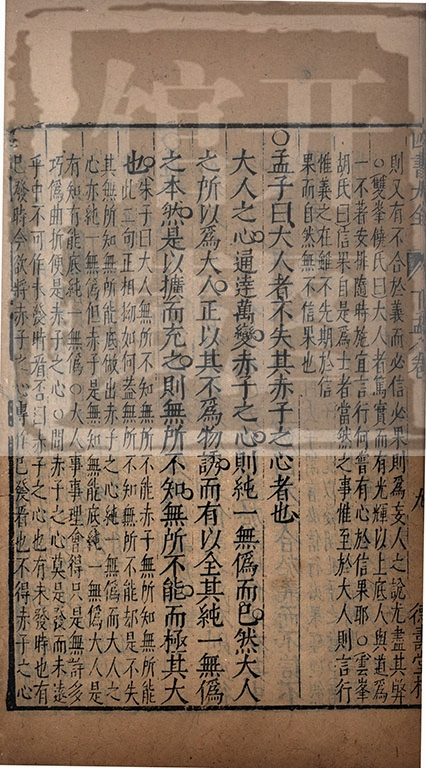 四書大全
下孟卷
九
德壽堂梓
則又有不合於義而必信必果則為妄人之說尤盡其弊
○雙峯饒氏曰大人者篤實而有光輝以上底人與道為
一不著安排隨時旋宜言行何嘗有心於信果耶○雲峯
胡氏曰信果自是為士者當然之事惟至於大人則言行
惟義之在雖不先期於信
果而自然無不信果也
○孟子曰大人者不失其赤子之心者也
大人之心通達萬變赤子之心則純一無偽而已然大人
之所以爲大人正以其不爲物誘而有以全其純一無僞
之本然是以擴而充之則無所不知無所不能而極其大
也朱子曰大人無所不知無所不能赤子無所知無所能
此二句正相拗如何盖無所不知無所不能却是不失
其無所知無所能底做出赤子之心純一無偽而大人之
心亦純一無偽但赤子是無知無能底純一無偽大人是
有知有能底純一無偽○大人事事理會得只是無許多
巧偽曲折便是赤子之心○問赤子之心莫是發而未遠
乎中不可作未發時看否曰赤子之心也有未發時也有
已發時今欲將赤子之心專作已發看也不得赤子之心